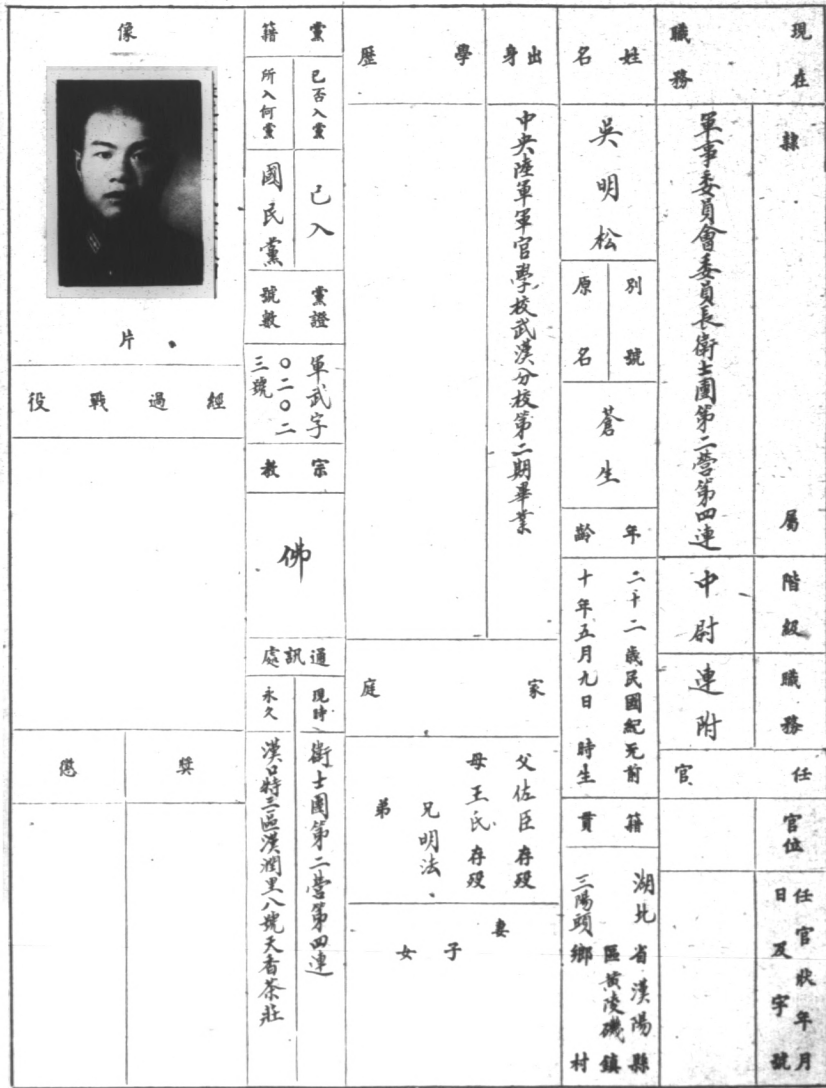 現在職務
隸屬
軍事委員會委員長衛士團第二營第四連
階級
中尉
職務
連附
任官
官位
任官狀年月日及字號
姓名
吳明松
別號
原名
蒼生
年齡
二十二歲民國紀元前
十年五月九日 時生
籍貫
湖北省漢陽縣
區黃陵磯鎮
三陽頭鄉 村
出身
中央陸軍軍官學校武漢分校第二期畢業
學歷
家庭
父佐臣存歿
母王氏存歿
兄明法
弟
妻
子
女
黨籍
已否入黨
已入
所入何黨
國民黨
黨證號數
軍武字
〇二〇二
三號
宗教
佛
通訊處
現時
衛士團第二營第四連
永久
漢口特三區漢潤里八號天香茶莊
像片
經過戰役
獎
懲